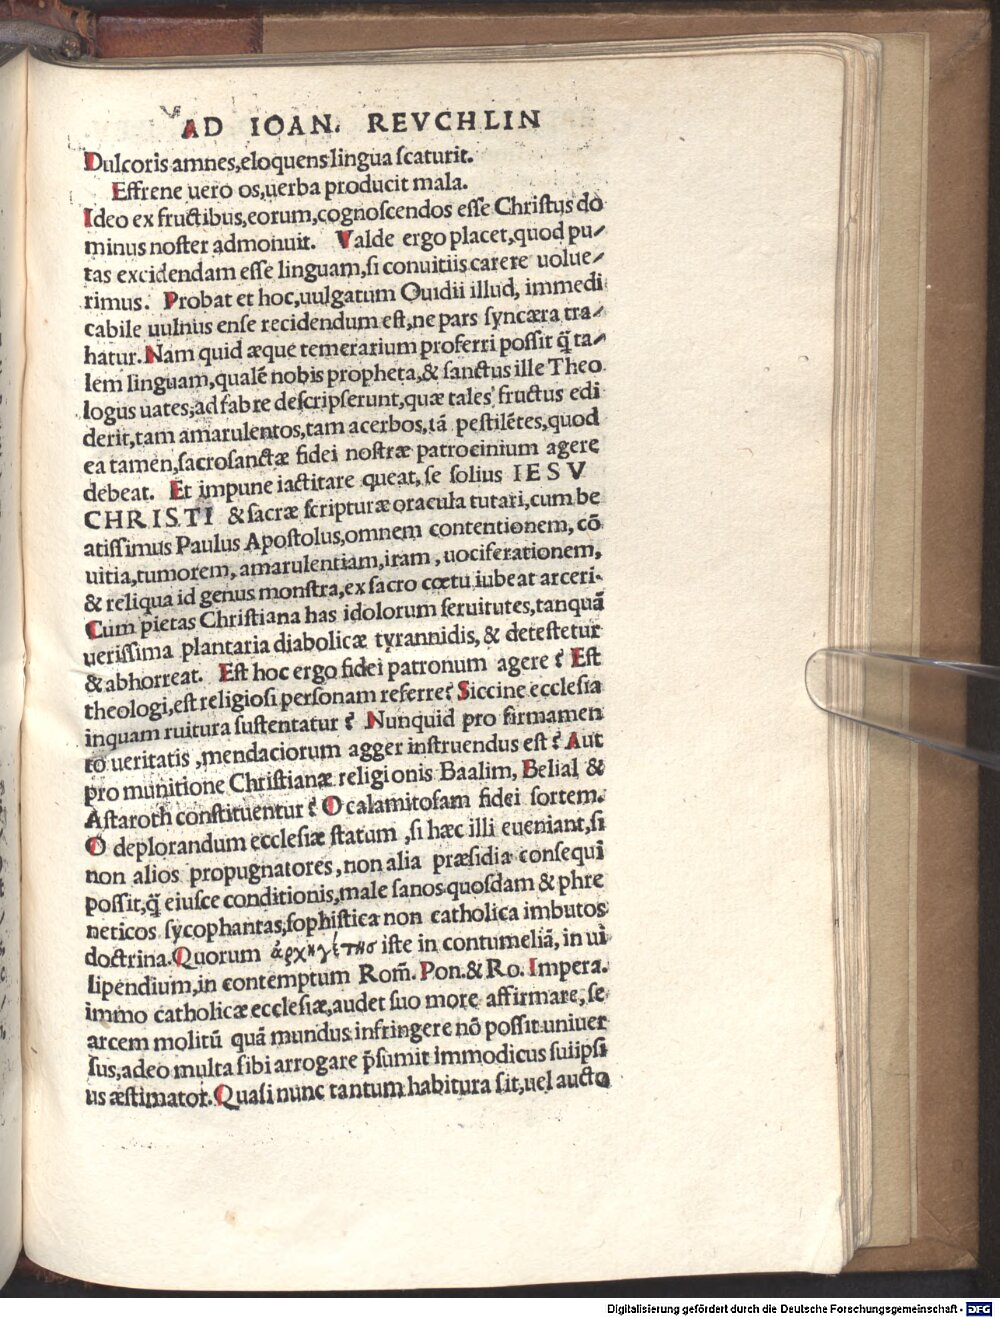 AD IOAN. REVCHLIN
Dulcoris amnes,eloquens lingua scaturit.
Effrene uero os,uerba producit mala.
Ideo ex fructibus,eorum,cognoscendos esse Christus dò
minus noster admonuit. Valde ergo placet,quod pu/
tas excidendam esse linguam,si conuitiis carere uolue/
rimus. Probat et hoc,uulgatum Ouidii illud, immedi
cabile uulnus ense recidendum est,ne pars syncæra tra/
hatur. Nam quid æque temerarium proferri possit q̃ ta/
lem linguam,qualẽ nobis propheta,& sanctus ille Theo
logus uates,ad fabre descripserunt,quæ tales fructus edi
derit,tam amarulentos,tam acerbos,tã pestilẽtes,quod
ea tamen,sacrosanctæ fidei nostræ patrocinium agere
debeat. Et impune iactitare queat,se solius IESV
CHRISTI & sacræ scripturæ oracula tutari,cum be
atissimus Paulus Apostolus,omnem contentionem, cõ
uitia,tumorem, amarulentiam,iram , uociferationem,
& reliqua id genus monstra,ex sacro cœtu iubeat arceri.
Cum pietas Christiana has idolorum seruitutes,tanquã
uerissima plantaria diabolicæ tyrannidis, & detestetur
& abhorreat. Est hoc ergo fidei patronum agere ? Est
theologi,est religiosi personam referre? Siccine ecclesia
inquam ruitura sustentatur ? Nunquid pro firmamen
to ueritatis ,mendaciorum agger instruendus est ? Aut
pro munitione Christianæ religionis Baalim, Belial &
Astaroth constituentur ? O calamitosam fidei sortem.
O deplorandum ecclesiæ statum ,si hæc illi eueniant,si
non alios propugnatores, non alia præsidia consequi
possit,q̃ eiusce conditionis,male sanos quosdam & phre
neticos sycophantas,sophistica non catholica imbutos
doctrina. Quorum ἀρχηγέτησ iste in contumeliã, in ui
lipendium,in contemptum Rom̃. Pon.& Ro. Impera.
immo catholicæ ecclesiæ,audet suo more affirmare, se
arcem molitũ quã mundus infringere nõ possit uniuer
sus,adeo multa sibi arrogare p̃sumit immodicus suiipsi
us æstimator. Quasi nunc tantum habitura sit,uel aucto
Digitalisierung gefördert durch die Deutsche Forschungsgemeinschaft - DFG